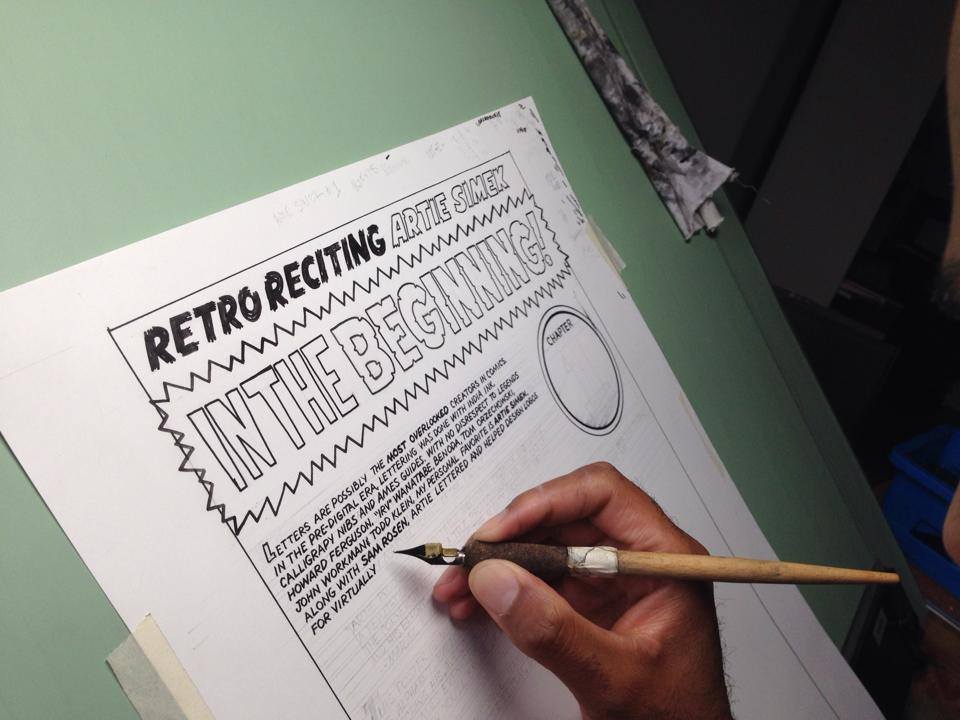 RETRO RECITING ARTIE SIMEK
IN THE BEGINNING!
CHAPTER
LETTERS ARE POSSIBLY THE MOST OVERLOOKED CREATORS IN COMICS.
IN THE PRE-DIGITAL ERA, LETTERING WAS DONE WITH INDIA INK,
CALLIGRAPY NIBS AND AMES GUIDES. WITH NO DISRESPECT TO LEGENDS
HOWARD FERGUSON, "IRV" WANATABE, BENODA, TOM ORZECHOWSKI,
JOHN WORKMANN, TODD KLEIN, MY PERSONAL FAVORITE IS ARTIE SIMEK.
ALONG WITH SAM ROSEN, ARTIE LETTERED AND HELPED DESIGN LOGOS
FOR VIRTUALLY